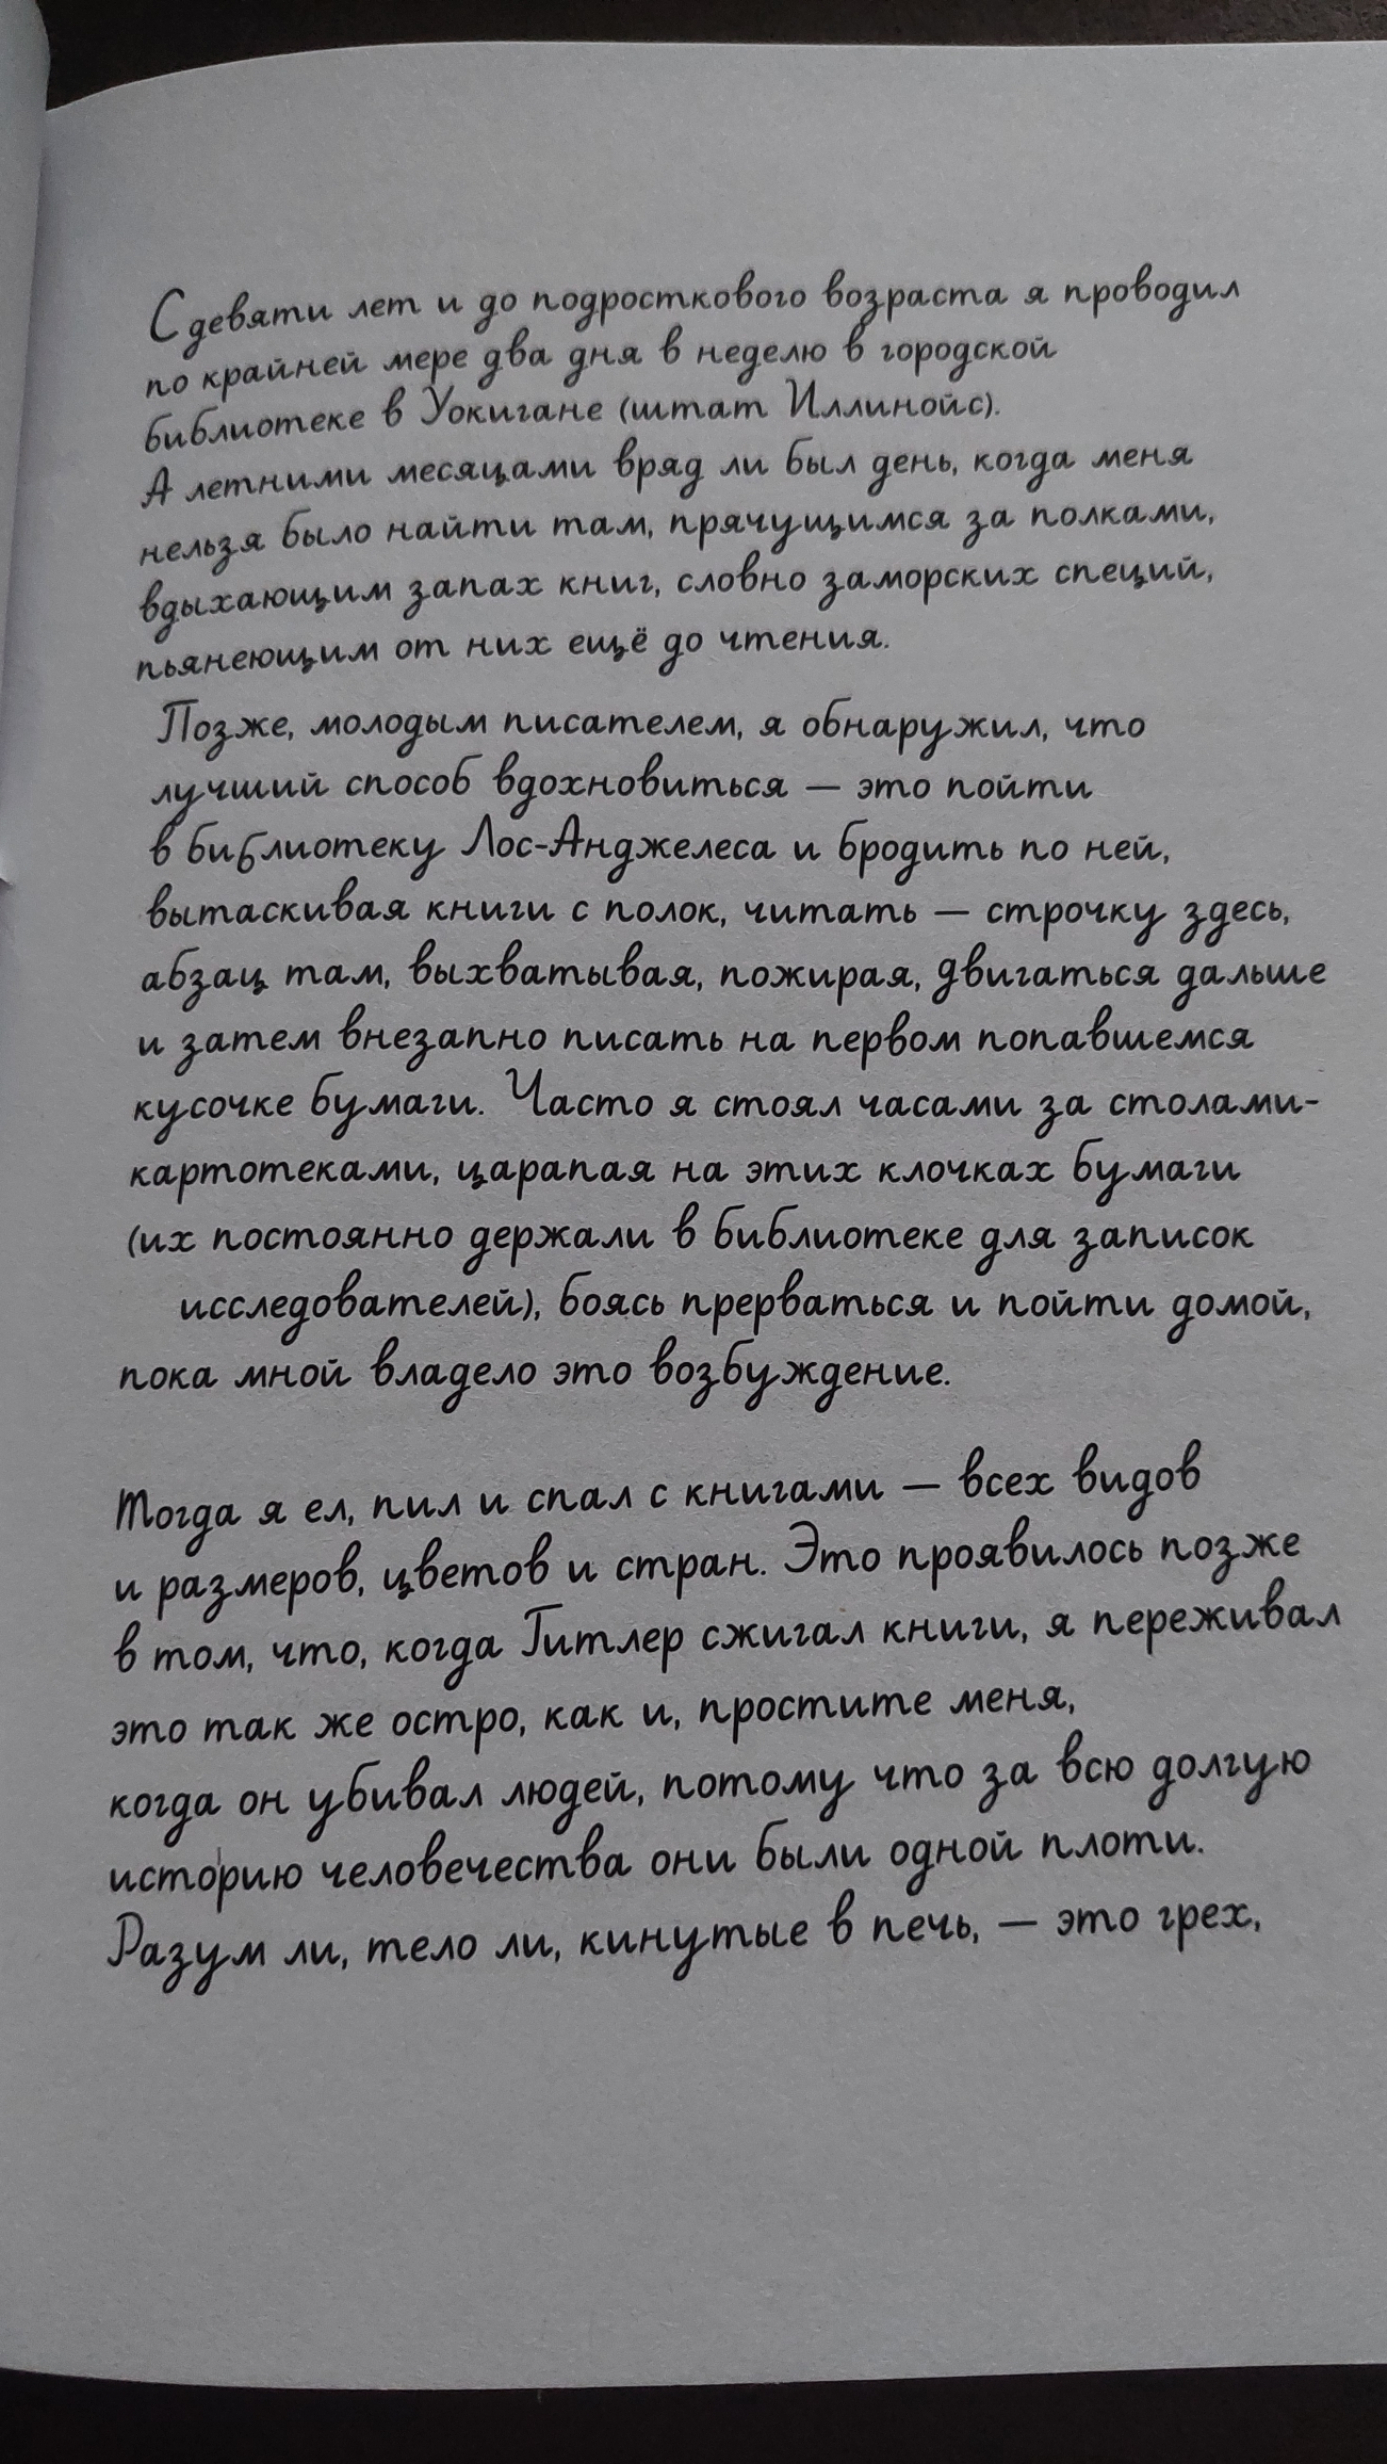 С девяти лет и до подросткового возраста я проводил
по крайней мере два дня в неделю в городской
библиотеке в Уокигане (штат Иллинойс).
А летними месяцами вряд ли был день, когда меня
нельзя было найти там, прячущимся за полками,
вдыхающим запах книг, словно заморских специй,
пьянеющим от них ещё до чтения.
Позже, молодым писателем, я обнаружил, что
лучший способ вдохновиться — это пойти
в библиотеку Лос-Анджелеса и бродить по ней,
вытаскивая книги с полок, читать — строчку здесь,
абзац там, выхватывая, пожирая, двигаться дальше
и затем внезапно писать на первом попавшемся
кусочке бумаги. Часто я стоял часами за столами-
картотеками, царапая на этих клочках бумаги
(их постоянно держали в библиотеке для записок
исследователей), боясь прерваться и пойти домой,
пока мной владело это возбуждение.
Тогда я ел, пил и спал с книгами — всех видов
и размеров, цветов и стран. Это проявилось позже
в том, что, когда Гитлер сжигал книги, я переживал
это так же остро, как и, простите меня,
когда он убивал людей, потому что за всю долгую
историю человечества они были одной плоти.
Разум ли, тело ли, кинутые в печь, — это грех,